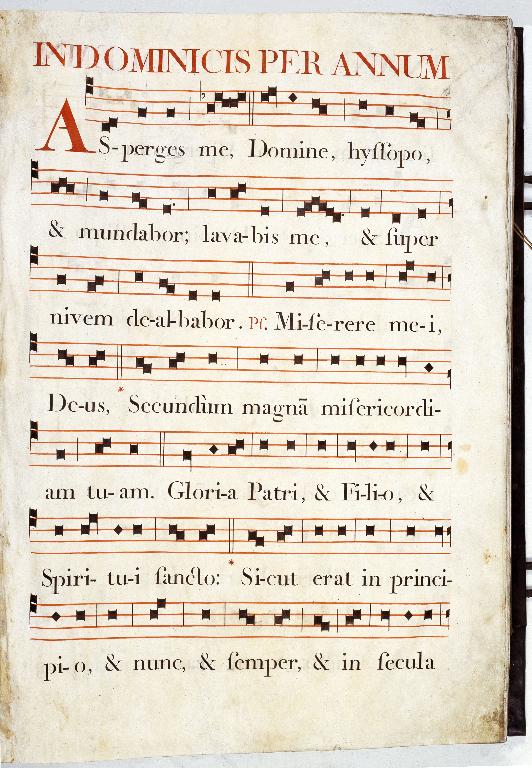 IN DOMINICIS PER ANNUM
AS-perges me, Domine, hyſſopo,
& mundabor; lava-bis me, & ſuper
nivem de-al-babor. Pſ. Mi-ſe-rere me-i,
De-us, * Secundùm magnã miſericordi-
am tu-am. Glori-a Patri, & Fi-li-o, &
Spiri-tu-i ſancto: * Si-cut erat in princi-
pi-o, & nunc, & ſemper, & in ſecula